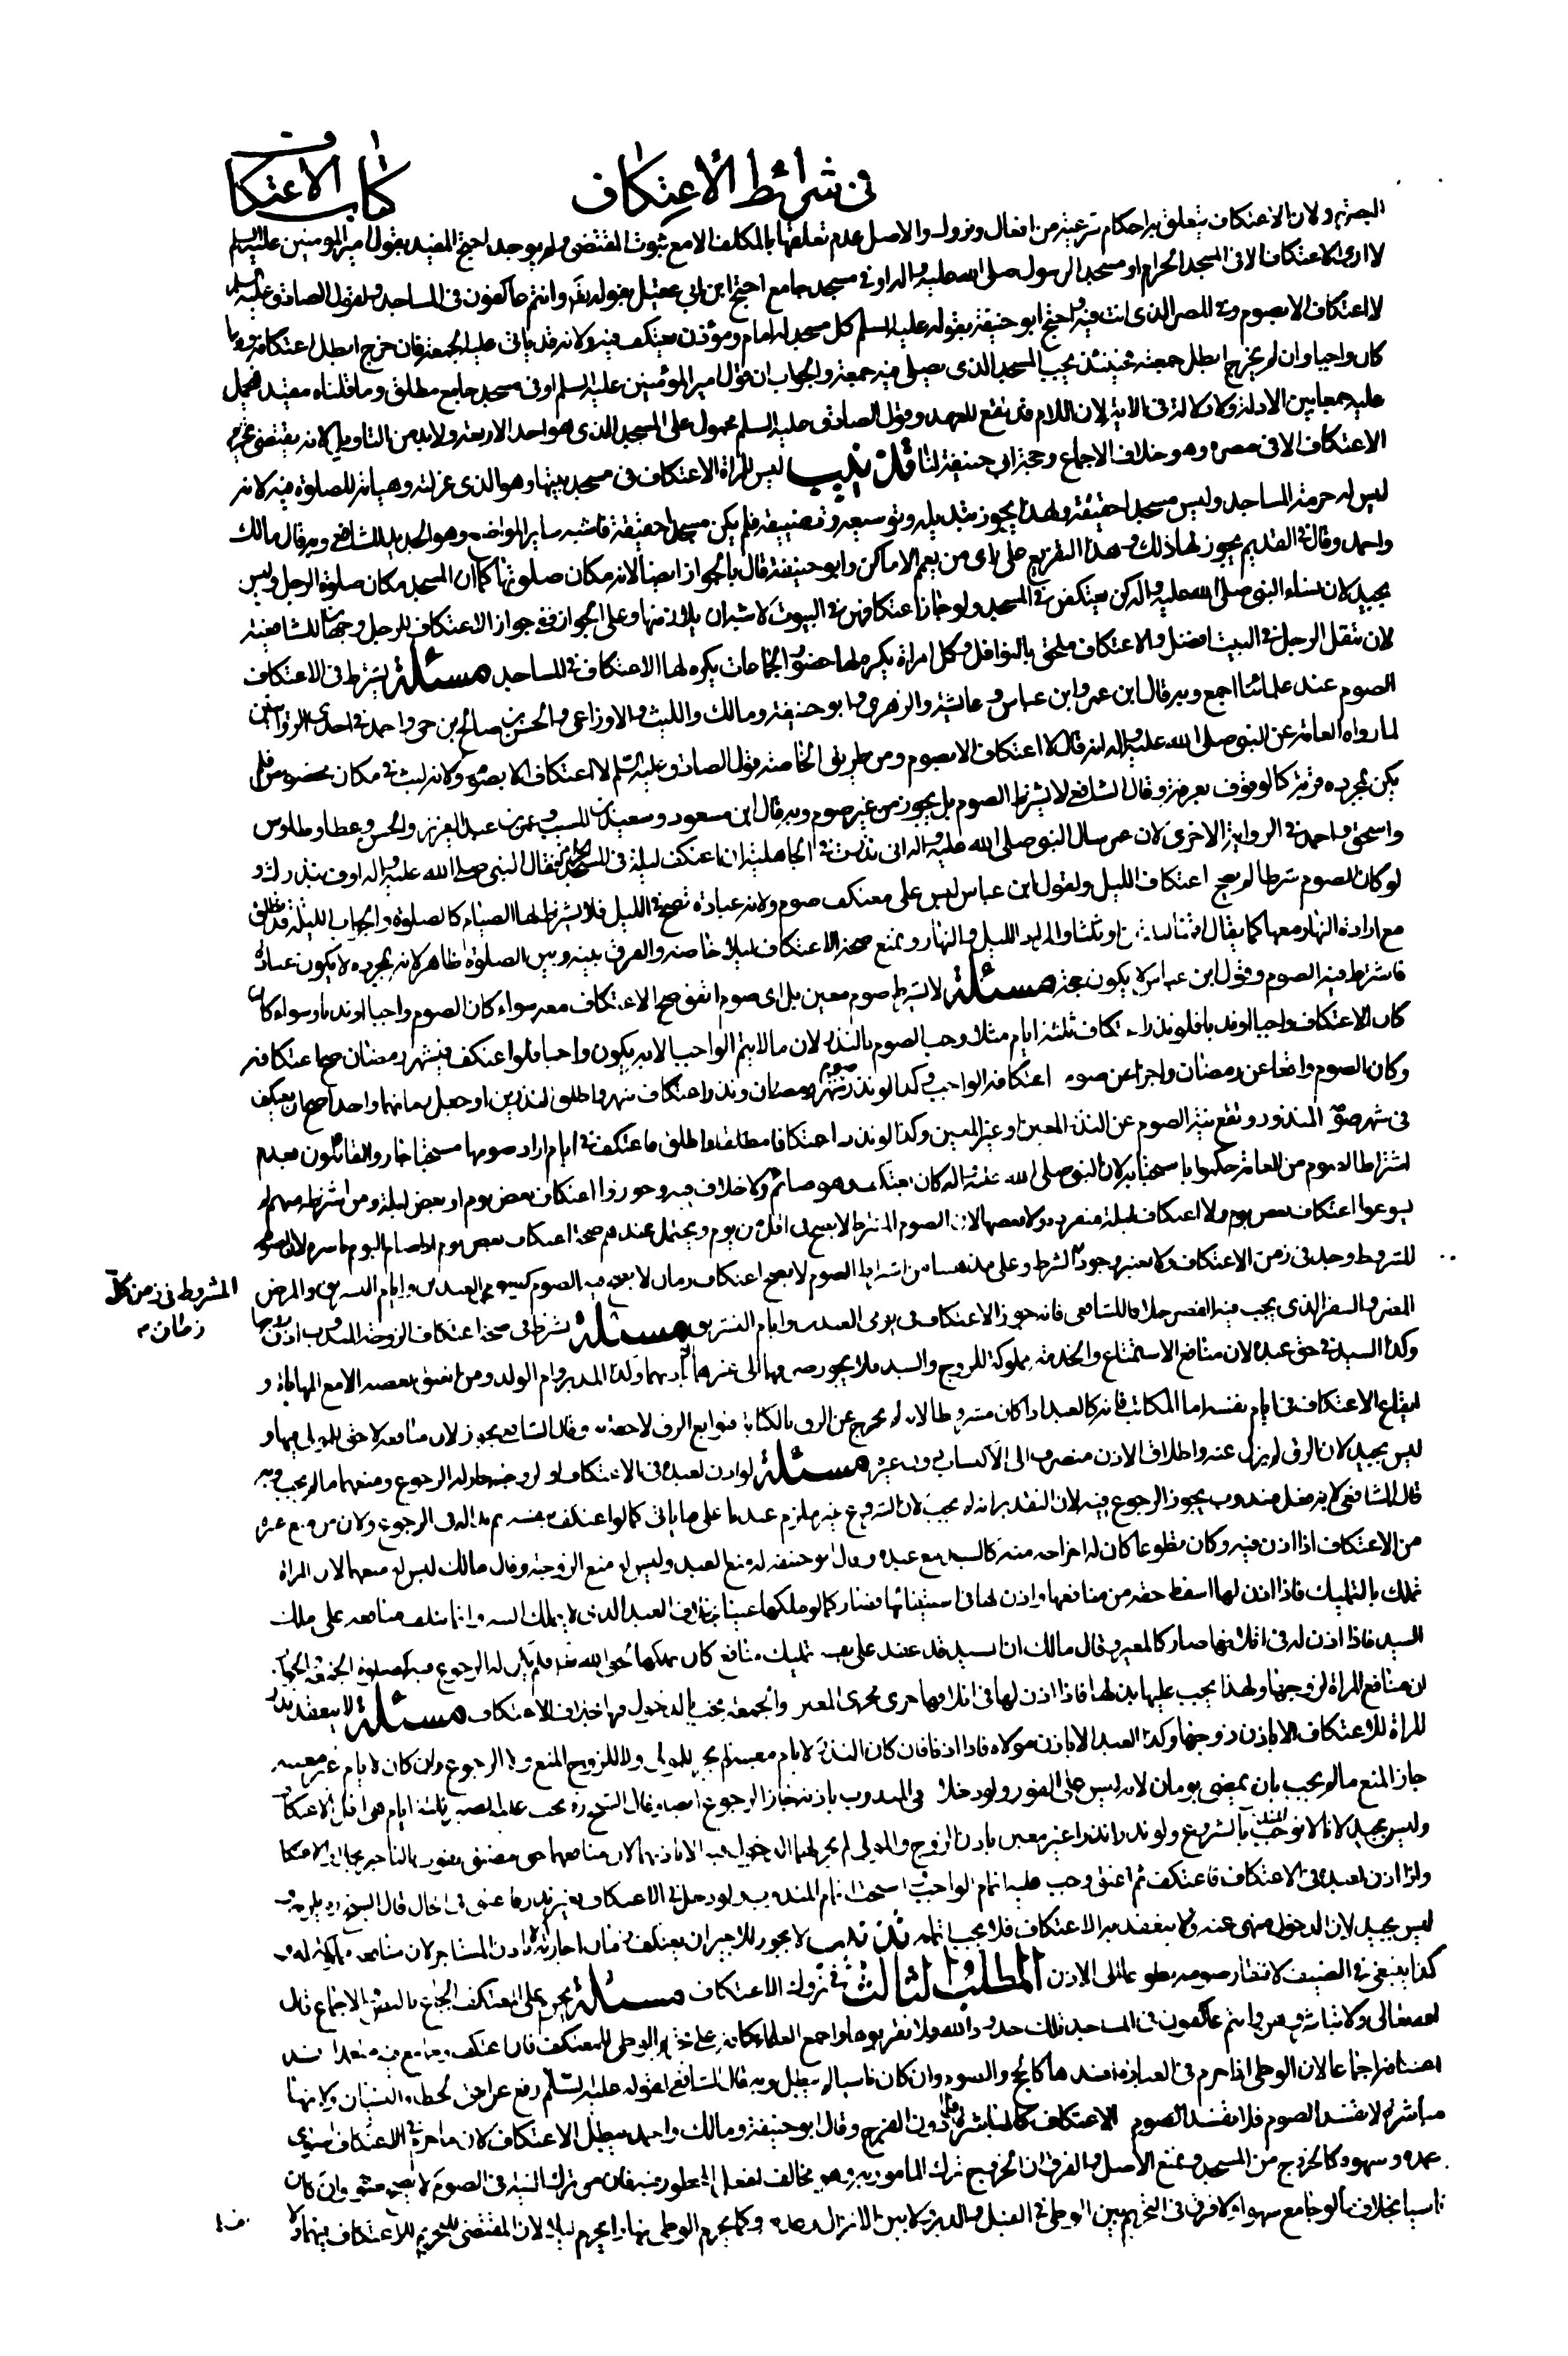 كتاب الاعتكاف
فى شرائط الاعتكاف
البصرة ولان الاعتكاف يتعلق به احكام شرعية من افعال وتروك والاصل عدم تعلقها بالمكلف الا مع ثبوت المقتضى ولم يوجد احتج المفيد بقول امير المومنين عليه السلم
لا ارى الاعتكاف الا فى المسجد الحرام او مسجد الرسول صلى الله عليه واله او فى مسجد جامع احتج ابن ابى عقيل بقوله تعالى وانتم عاكفون فى المساجد ولقول الصادق عليه السلم
لا اعتكاف الا بصوم وفى المصر الذى انت فيه واحتج ابو حنيفة بقوله عليه السلم كل مسجد له امام ومؤذن يعتكف فيه ولانه قد ياتى عليه الجمعة فان خرج ابطل اعتكافه وربما
كان واجبا وان لم يخرج ابطل جمعته فحينئذ يجب المسجد الذى يصلى فيه جمعة والجواب ان قول امير المؤمنين عليه السلم او فى مسجد جامع مطلق وما قلناه مقيد فيحمل
عليه جمعا بين الادلة ولا دلالة فى الاية لان اللام قد تقع للعهد وقول الصادق عليه السلم محمول على المسجد الذى هو احد الاربعة ولابد من التاويل لانه يقتضى تحريم
الاعتكاف الا فى مصره وهو خلاف الاجماع وحجة ابى حنيفة لنا قلت تذنيب ليس للمراة الاعتكاف فى مسجد بيتها وهو الذى عزلته وهياته للصلوة فيه لانه
ليس له حرمة المساجد وليس مسجدا حقيقة ولهذا يجوز تبديله وتوسيعه وتضييقه فلم يكن مسجدا حقيقة فاشبه ساير المواضع وهو الجديد للشافعى وبه قال مالك
واحمد وقال فى القديم يجوز لها ذلك وهذا التفريع على راى من يعم الاماكن وابو حنيفة قال بالجواز ايضا لانه مكان صلوتها كما ان المسجد مكان صلوة الرجل وليس
بجيد لان نساء النبى صلى الله عليه واله كن يعتكفن فى المسجد ولو جاز اعتكافهن فى البيوت لاشبه ان يلازمنها وعلى الجواز ففى جواز الاعتكاف للرجل وجهان للشافعية
لان تنفل الرجل فى البيت افضل والاعتكاف ملحق بالنوافل وكل امراة يكره لها حضور الجماعات يكره لها الاعتكاف فى المساجد مسئلة يشترط فى الاعتكاف
الصوم عند علمائنا اجمع وبه قال ابن عمر وابن عباس وعايشة والزهرى وابو حنيفة ومالك والليث والاوزاعى والحسن بن صالح بن حى واحمد فى احدى الروايتين
لما رواه العامة عن النبى صلى الله عليه واله انه قال لا اعتكاف الا بصوم ومن طريق الخاصة قول الصادق عليه السلم لا اعتكاف الا بصوم ولانه لبث فى مكان مخصوص فلم
يكن بمجرده قربة كالوقوف بعرفة وقال الشافعى لا يشترط الصوم بل يجوز من غير صوم وبه قال ابن مسعود وسعيد بن المسيب وعمر بن عبد العزيز والحسن وعطا وطاوس
واسحق واحمد فى الرواية الاخرى لان عمر سال النبى صلى الله عليه واله انى نذرت فى الجاهلية ان اعتكف ليلة فى المسجد الحرام فقال النبى صلى الله عليه واله اوف بنذرك ولو
لو كان الصوم شرطا لم يصح اعتكاف الليل ولقول ابن عباس ليس على معتكف صوم ولانه عبادة تصح فى الليل فلا يشترط لها الصيام كالصلوة والجواب الليلة قد تطلق
مع ارادة النهار معها كما يقال اقمنا ليلتين او ثلثا والمراد الليل والنهار ويمنع صحة الاعتكاف ليلا خاصة والفرق بينه وبين الصلوة ظاهر لانه بمجرده لا يكون عبادة
فاشترط فيه الصوم وقول ابن عباس لا يكون حجة مسئلة لا يشترط صوم معين بل اى صوم اتفق صح الاعتكاف معه سواء كان الصوم واجبا او ندبا وسواء كان
كان الاعتكاف واجبا او ندبا فلو نذر اعتكاف ثلثة ايام مثلا وجب الصوم بالنذر لان ما لا يتم الواجب الا به يكون واجبا فلو اعتكف فى شهر رمضان صح اعتكافه
وكان الصوم واقعا عن رمضان واجزا عن صوم اعتكافه الواجب وكذا لو نذر صوم شهر رمضان ونذر اعتكاف شهر واطلق النذرين او جعل زمانهما واحدا صح ان يعتكف
فى شهر صوم المنذور وتقع نية الصوم عن النذر المعين او غير المعين وكذا لو نذر اعتكافا مطلقا واطلق فاعتكف فى ايام اراد صومها مستحبا جاز والقائلون بعدم
اشتراط الصوم من العامة حكموا باستحبابه لان النبى صلى الله عليه واله كان يعتكف وهو صائم ولا خلاف فيه وجوزوا اعتكاف بعض يوم او بعض ليلة ومن اشترطه منهم لم
يسوغوا اعتكاف بعض يوم ولا اعتكاف ليلة منفردة ولا بعضها لان الصوم المشترط لا يصح فى اقل من يوم ويحتمل عندهم صحة اعتكاف بعض يوم اذا صام اليوم باسره لان الصوم
المشروط وجد فى زمن الاعتكاف ولا يعتبر وجود المشروط فى زمن كل زمان الشرط وعلى مذهبنا من اشتراط الصوم لا يصح اعتكاف زمان لا يصح فيه الصوم كيوم العيدين وايام التشريق والمرض
المضر والسفر الذى يجب فيه القصر خلافا للشافعى فانه جوز الاعتكاف فى يومى العيد وايام التشريق مسئلة يشترط فى صحة اعتكاف الزوجة المندوب اذن زوجها
وكذا السيد فى حق عبده لان منافع الاستمتاع والخدمة مملوكة للزوج والسيد فلا يجوز صرفها الى غيرهما الا باذنهما وكذا المدبر وام الولد ومن انعتق بعضه الا مع المهاياة و
ايقاع الاعتكاف فى ايام نفسه اما المكاتب فانه كالعبد اذا كان مشروطا لانه لم يخرج عن الرق بالكتابة فتوابع الرق لاحقة به وقال الشافعى يجوز لان منافعه لا حق للمولى فيها و
ليس بجيد لان الرق لم يزل عنه واطلاق الاذن منصرف الى الاكتساب دون غيره مسئلة لو اذن لعبده فى الاعتكاف او لزوجته جاز له الرجوع ومنعهما ما لم يجب وبه
قال الشافعى لانه فعل مندوب يجوز الرجوع فيه لان التقدير انه لم يجب لان الشروع غير ملزم عندنا على ما ياتى كما لو اعتكف بنفسه ثم بدا له فى الرجوع ولان من منع غيره
من الاعتكاف اذا اذن فيه وكان تطوعا كان له اخراجه منه كالسيد مع عبده وقال ابو حنيفة له منع العبد وليس له منع الزوجة وقال مالك ليس له منعهما لان المراة
تملك بالتمليك فاذا اذن لها اسقط حقه من منافعها واذن لها فى استيفائها فصار كما لو ملكها عينا بخلاف العبد الذى لا يملك بالتمليك وانما يتلف منافعه على ملك
السيد فاذا اذن له فى اتلافها صار كالمعير وقال مالك ان السيد قد عقد على نفسه تمليك منافع كان يملكها لحق الله تعالى فلم يكن له الرجوع فيه كصلوة الجمعة والجواب
ان منافع المراة لزوجها ولهذا يجب عليها بذلها فاذا اذن لها فى اتلافها جرى مجرى المعير والجمعة يجب الدخول فيها بخلاف الاعتكاف مسئلة لا ينعقد نذر
المراة للاعتكاف الا باذن زوجها وكذا العبد الا باذن مولاه فاذا اذنا فان كان النذر لايام معينة لم يجز للمولى ولا للزوج المنع ولا الرجوع وان كان لايام غير معينة
جاز المنع ما لم يجب بان يمضى يومان لانه ليس على الفور ولو دخلا فى المندوب باذنه جاز الرجوع ايضا وقال الشيخ ره يجب عليه الصبر ثلثة ايام هو اقل الاعتكاف
وليس بجيد لانا لا نوجب المندوب بالشروع ولو نذرا نذرا غير معين باذن الزوج والمولى لم يجز لهما الدخول فيه الا باذنهما لان منافعهما حق مضيق يفوت بالتاخير بخلاف الاعتكاف
ولو اذن لعبده فى الاعتكاف فاعتكف ثم اعتق وجب عليه اتمام الواجب واستحب اتمام المندوب ولو دخل فى الاعتكاف بغير اذن فاعتق فى الحال قال الشيخ ره يلزمه و
ليس بجيد لان الدخول منهى عنه فلا ينعقد به الاعتكاف فلا يجب اتمامه تذنيب لا يجوز للاجير ان يعتكف زمان اجارته الا باذن المستاجر لان منافعه مملوكة له و
كذا ينبغى فى الضيف لافتقار صومه تطوعا الى الاذن المطلب الثالث فى تروك الاعتكاف مسئلة يحرم على المعتكف الجماع بالنص والاجماع قال
الله تعالى ولا تباشروهن وانتم عاكفون فى المساجد تلك حدود الله فلا تقربوها واجمع العلماء كافة على تحريم الوطى للمعتكف فان اعتكف وجامع فيه متعمدا فسد
اعتكافه اجماعا لان الوطى اذا حرم فى العبادة افسدها كالحج والصوم وان كان ناسيا لم يبطل وبه قال الشافعى لقوله عليه السلم رفع عن امتى الخطاء والنسيان ولانها
مباشرة لا تفسد الصوم فلا تفسد الاعتكاف كالمباشرة دون الفرج وقال ابو حنيفة ومالك واحمد يبطل الاعتكاف لان ما حرم فى الاعتكاف استوى
عمده وسهوه كالخروج من المسجد ويمنع الاصل والفرق ان الخروج ترك المامور به وهو مخالف لفعل المحظور فيه فان من ترك النية فى الصوم لا يصح صومه وان كان
ناسيا بخلاف ما لو جامع سهوا ولا فرق فى التحريم بين الوطى فى القبل والدبر ولا بين الانزال وعدمه وكما يحرم الوطى نهارا يحرم ليلا لان المقتضى للتحريم الاعتكاف فيهما ولا